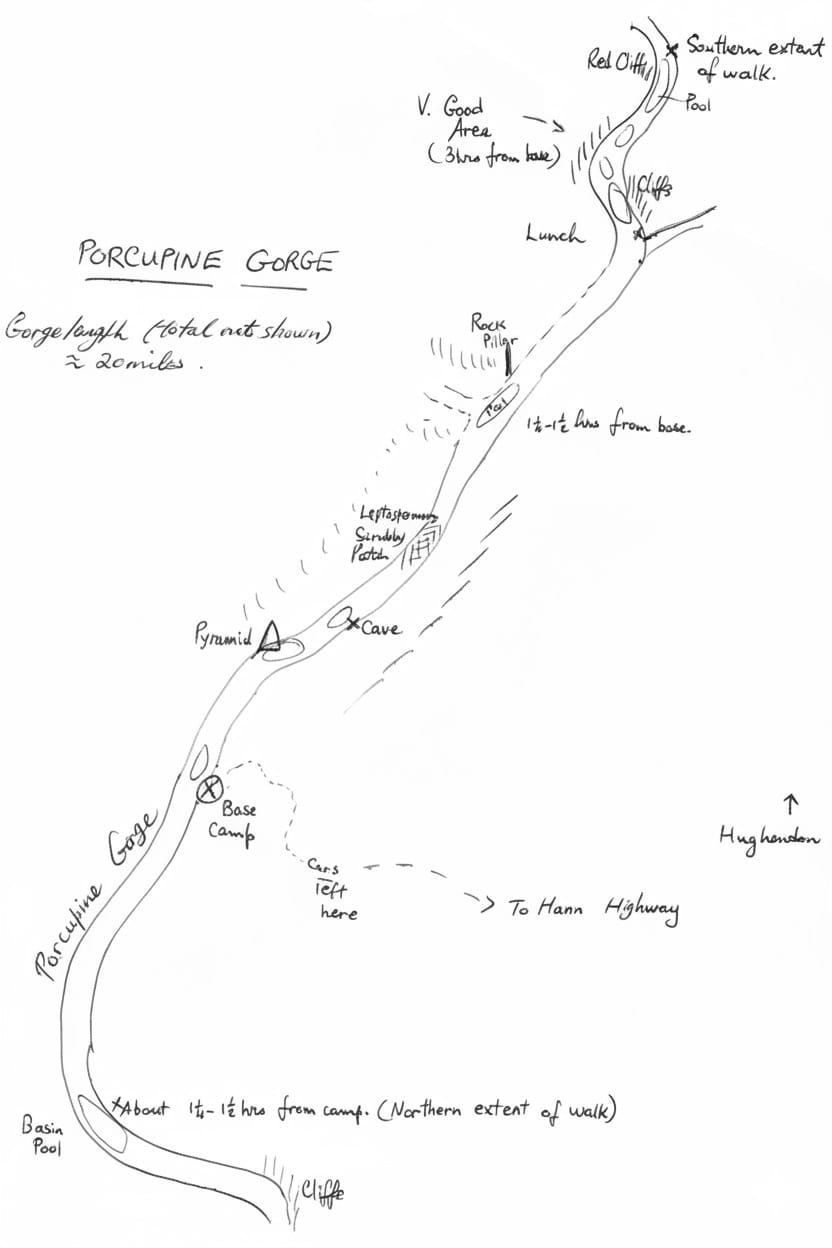 Southern extent
of walk.
Red Cliffs
Pool
V. Good
Area
(3hrs from base)
Cliffs
Lunch
PORCUPINE GORGE
Gorge length (total not shown)
≈ 20 miles.
Rock
Pillar
Pool
1¼-1½ hrs from base.
Scrubby
Patch
Pyramid
Cave
Base
Camp
Porcupine Gorge
Cars
left
here
To Hann Highway
Hughendon
About 1¼-1½ hrs from camp. (Northern extent of walk)
Basin
Pool
Cliffs